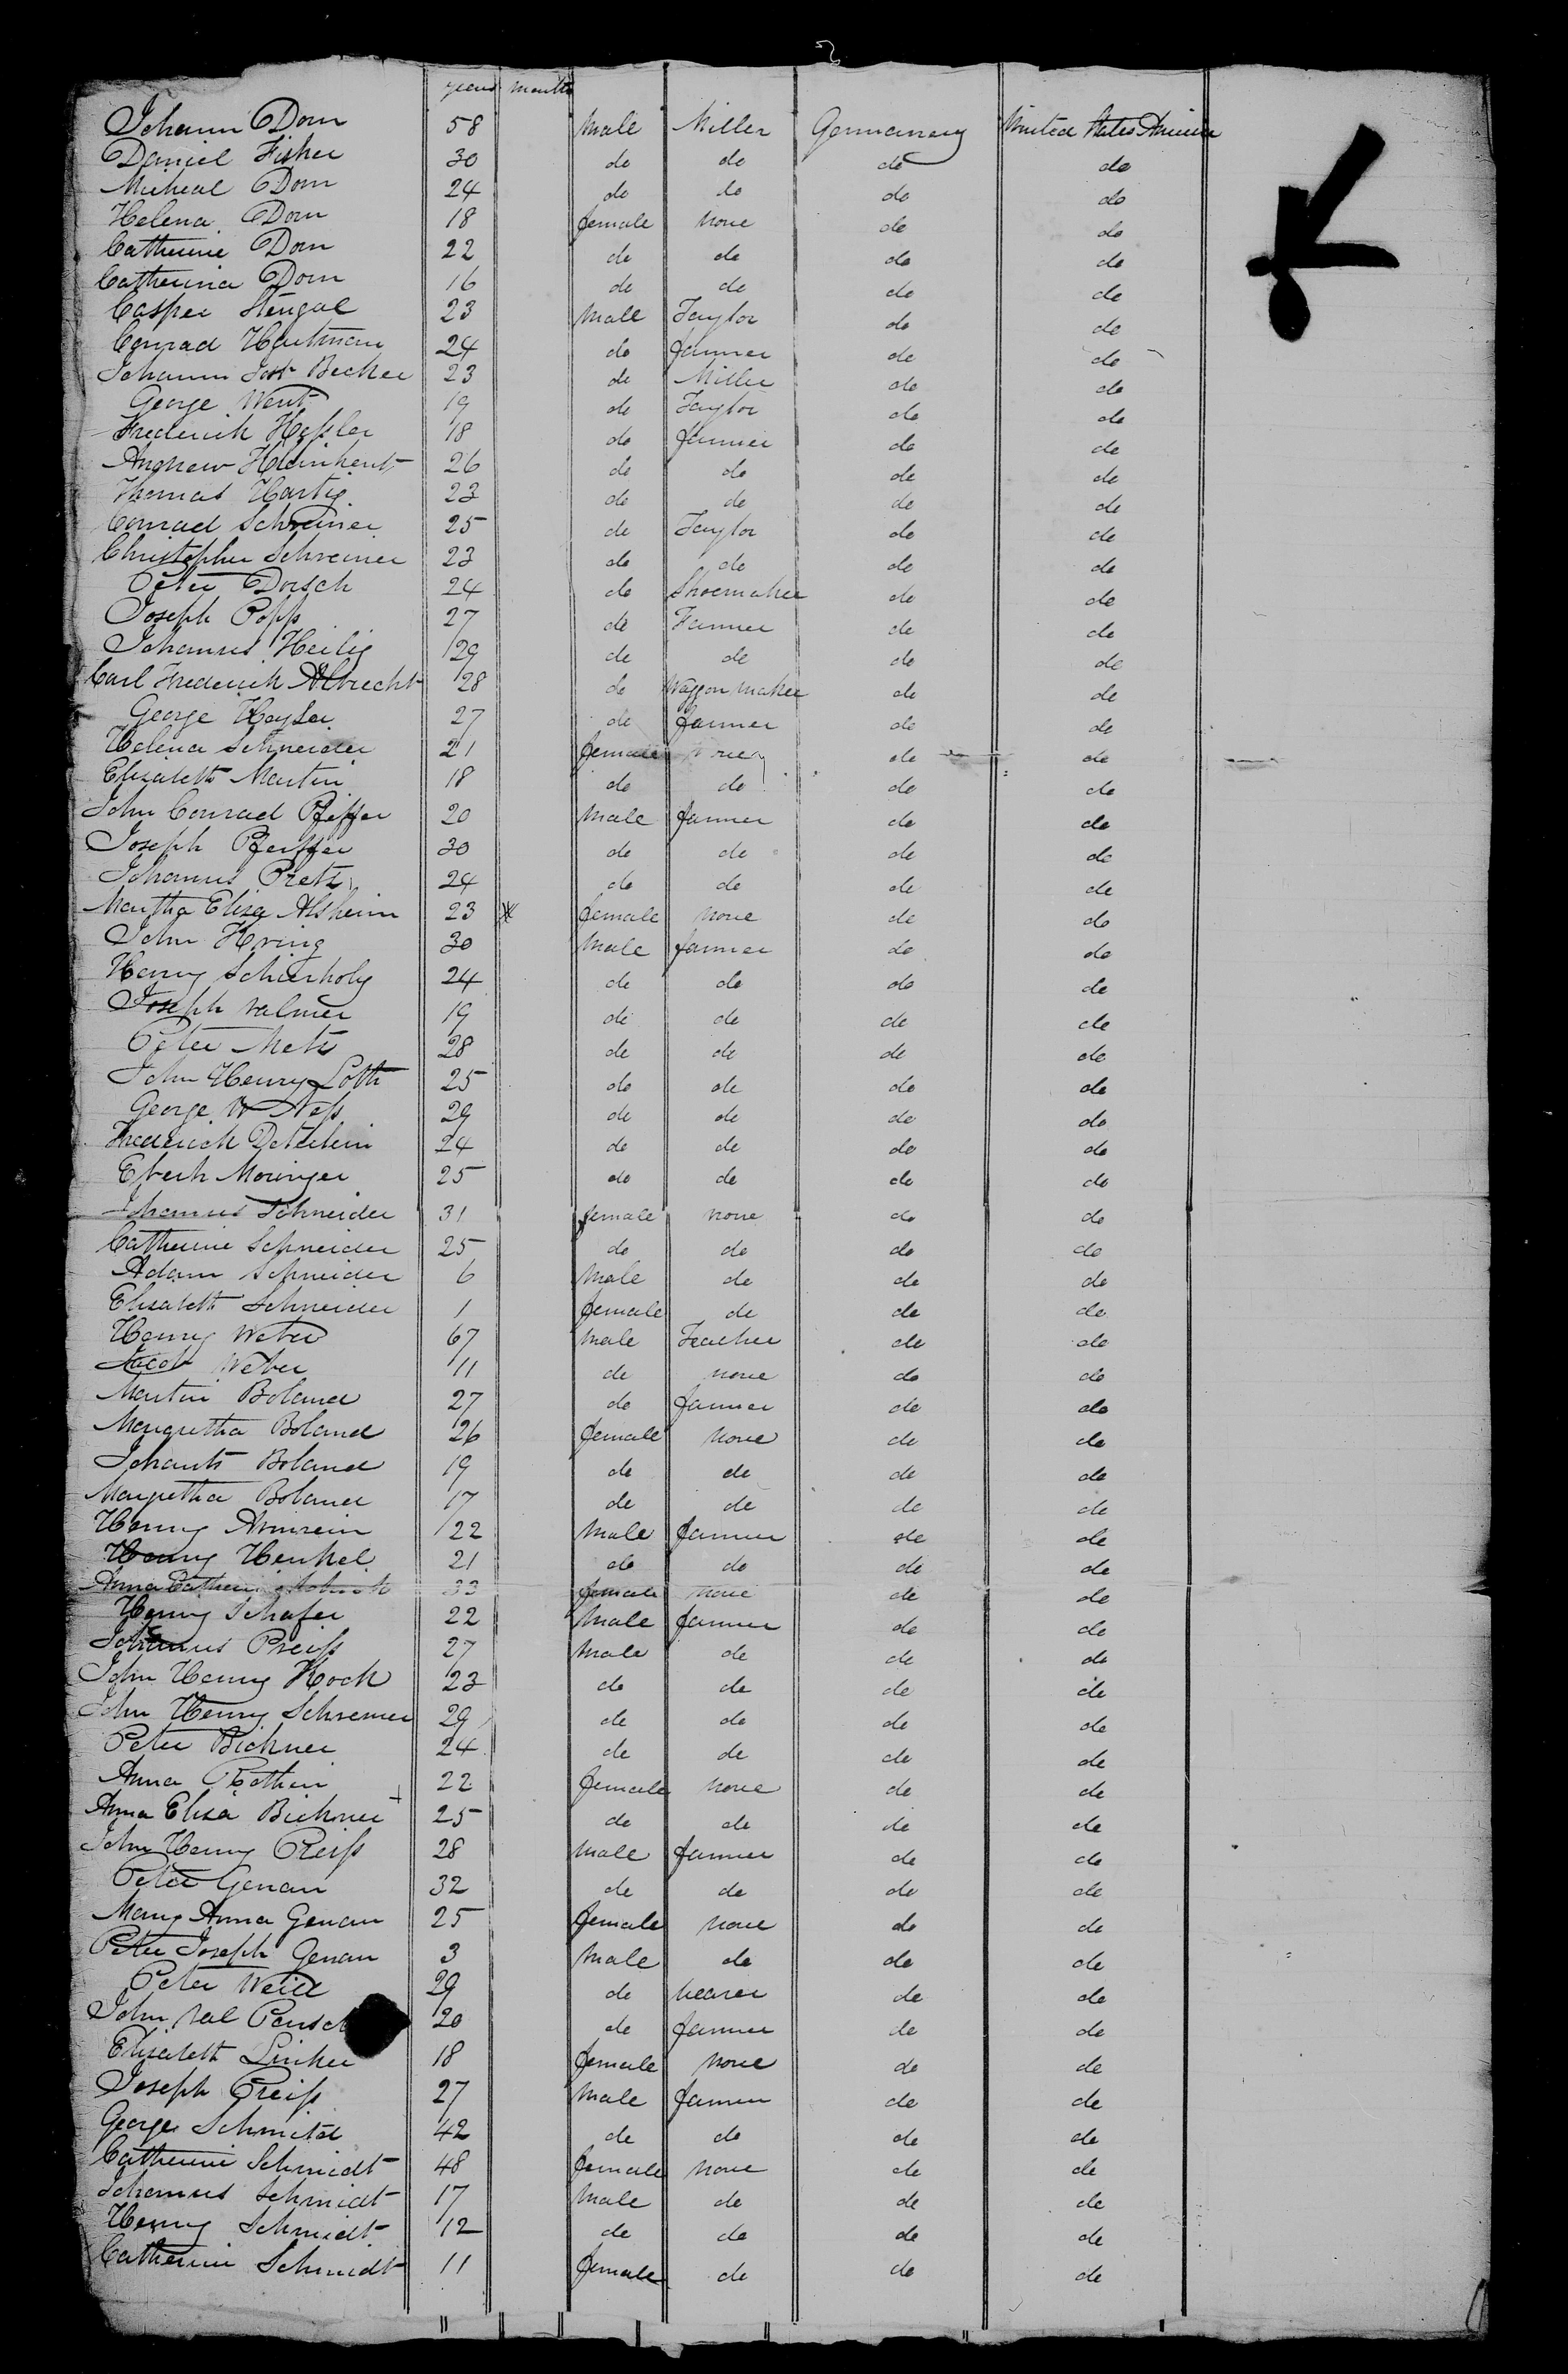 years months
Johann Dorn 58 Male Miller Germanany United States America
Daniel Fisher 30 do do do do
Micheal Dorn 24 do do do do
Helena Dorn 18 female None do do
Catherine Dorn 22 do do do do
Catherina Dorn 16 do do do do
Casper Stengal 23 Male Taylor do do
Conrad Hartman 24 do farmer do do
Johann Jost Becker 23 do Miller do do
George Went 19 do Taylor do do
Frederick Heßler 18 do farmer do do
Andrew 26 do do do do
Thomas Hartig 23 do do do do
Conrad Schreiner 25 do Taylor do do
Christopher Schreiner 23 do do do do
Peter Dorsch 24 do Shoemaker do do
Joseph Popp 27 do Farmer do do
Johannes Heilig 29 do do do do
Carl Frederick Albrecht 28 do Waggon maker do do
George Heyser 27 do farmer do do
Helena Schneider 21 female None do do
Elisabeth Martin 18 do do do do
John Conrad Pfeffer 20 Male farmer do do
Joseph Pfeiffer 30 do do do do
Johannes Pretz 24 do do do do
Martha Eliza Alsheim 23 female None do do
John Hering 30 Male farmer do do
Henry Schierholz 24 do do do do
Joseph Valmer 19 do do do do
Peter Metz 28 do do do do
John Henry Loth 25 do do do do
George W Neß 29 do do do do
Frederick 24 do do do do
Moringer 25 do do do do
Johannes Schneider 31 female none do do
Catherine Schneider 25 do do do do
Adam Schneider 6 Male do do do
Elisabeth Schneider 1 female do do do
Henry Weber 67 Male Teacher do do
Jacob Weber 11 do none do do
Martin Boland 27 do farmer do do
Margretha Boland 26 female None do do
Boland 19 do do do do
Margretha Boland 17 do do do do
Henry Amrein 22 Male farmer do do
Henry Henkel 21 do do do do
Anna 33 female None do do
Henry Schafer 22 Male farmer do do
Johannes Preiß 27 Male do do do
John Henry Hock 23 do do do do
John Henry Schreiner 29 do do do do
Peter Bickner 24 do do do do
Anna 22 female None do do
Anna Elisa Bickner 25 do do do do
John Henry Preiß 28 Male farmer do do
Peter Genau 32 do do do do
Mary Anna Genau 25 female None do do
Peter Joseph Genau 3 Male do do do
Peter Weill 29 do do do
John Val 20 do farmer do do
Elisabeth Linker 18 female None do do
Joseph Preiß 27 Male farmer do do
George Schmidt 42 do do do do
Catherine Schmidt 48 female None do do
Johannes Schmidt 17 Male do do do
Henry Schmidt 12 do do do do
Catherine Schmidt 11 female do do do